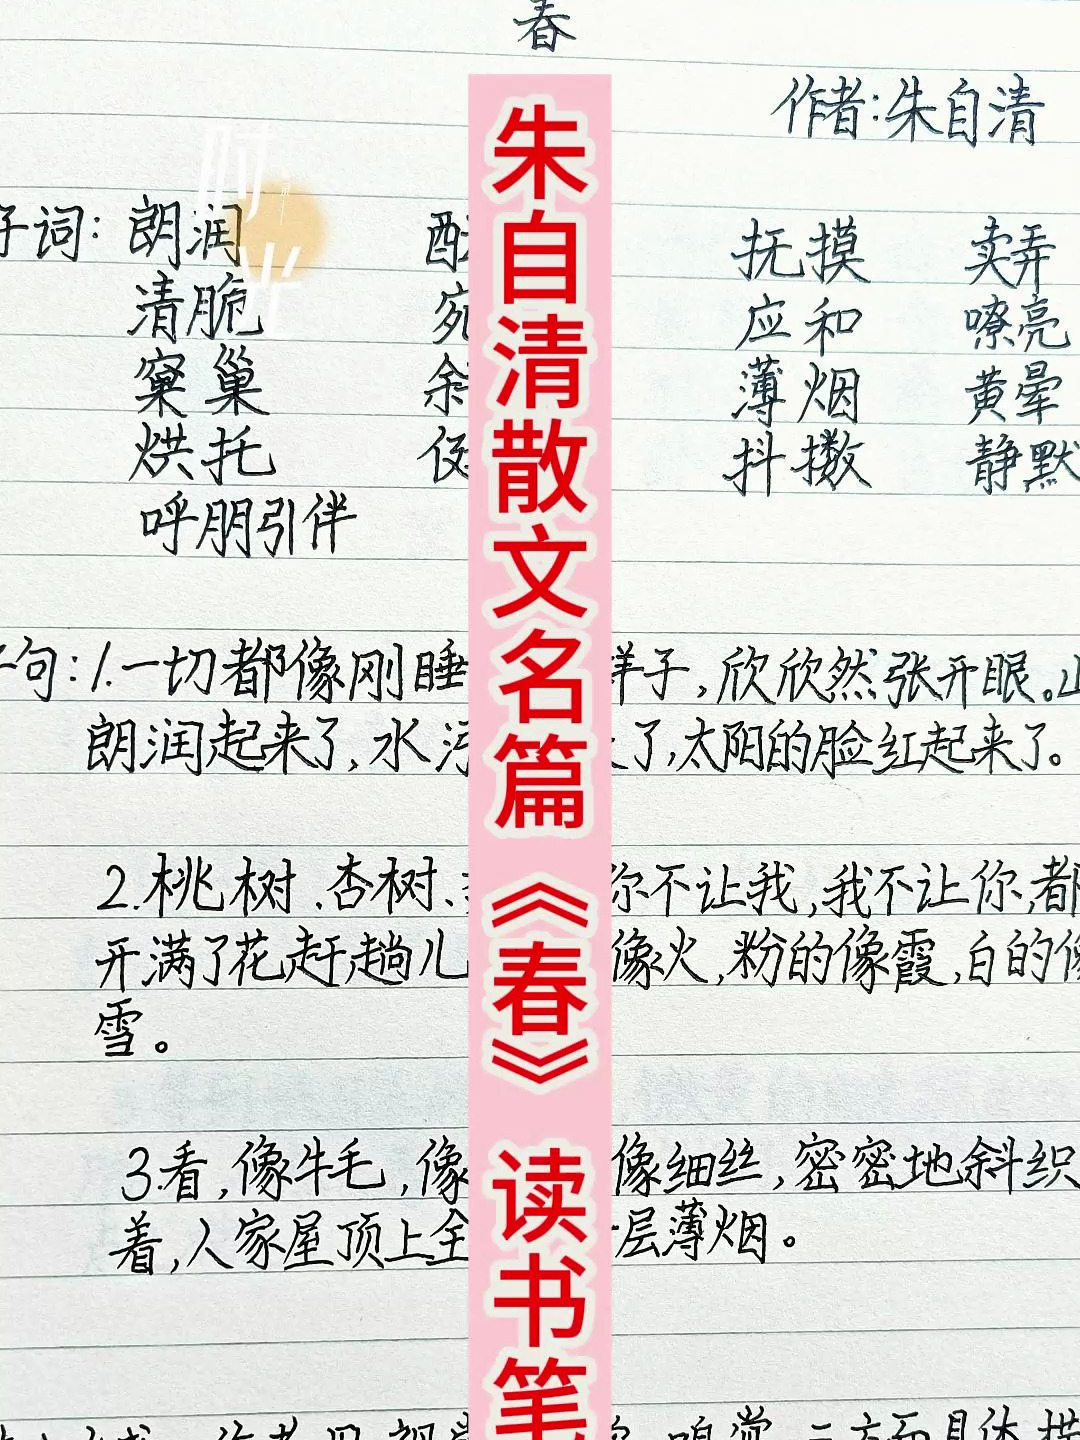 春
作者:朱自清
好词: 朗润 抚摸 卖弄
清脆 宛 应和 嘹亮
窠巢 薄烟 黄晕
烘托 抖擞 静默
呼朋引伴
句:1.一切都像刚睡 样子,欣欣然张开眼。山
朗润起来了,水 了,太阳的脸红起来了。
2.桃树、杏树、 你不让我,我不让你,都
开满了花赶趟儿 像火,粉的像霞,白的像
雪。
3.看,像牛毛,像 像细丝,密密地斜织
着,人家屋顶上全 一层薄烟。
朱自清散文名篇《春》 读书笔